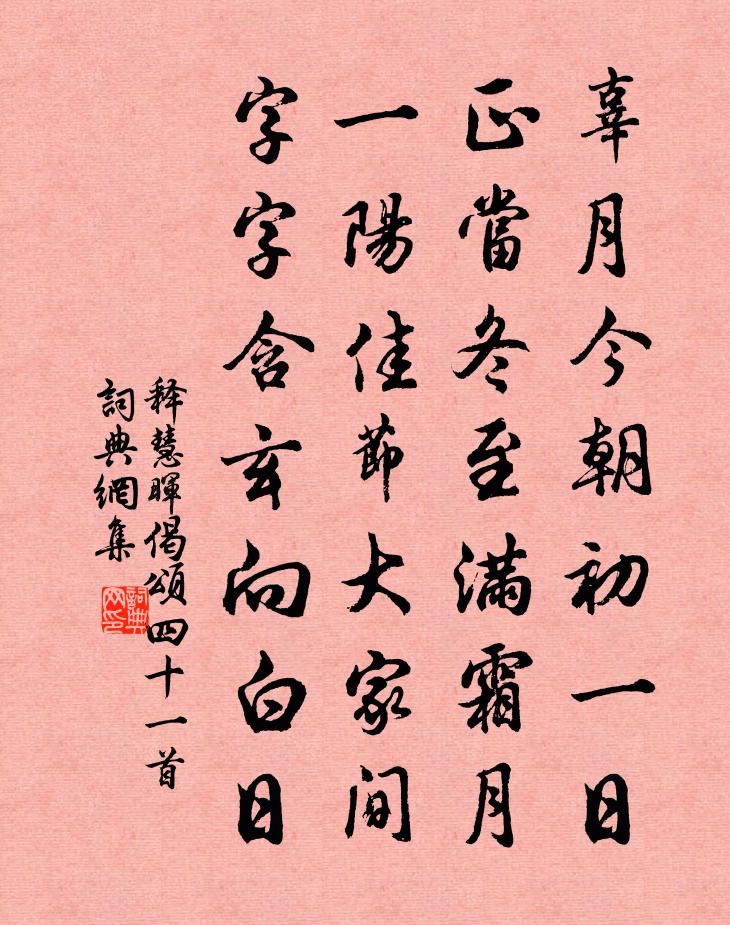 辜月今朝初一日
正當冬至滿霜月
一陽佳節大家間
字字含玄向白日
释慧暉偈頌四十一首
詞典網集
詞典网印